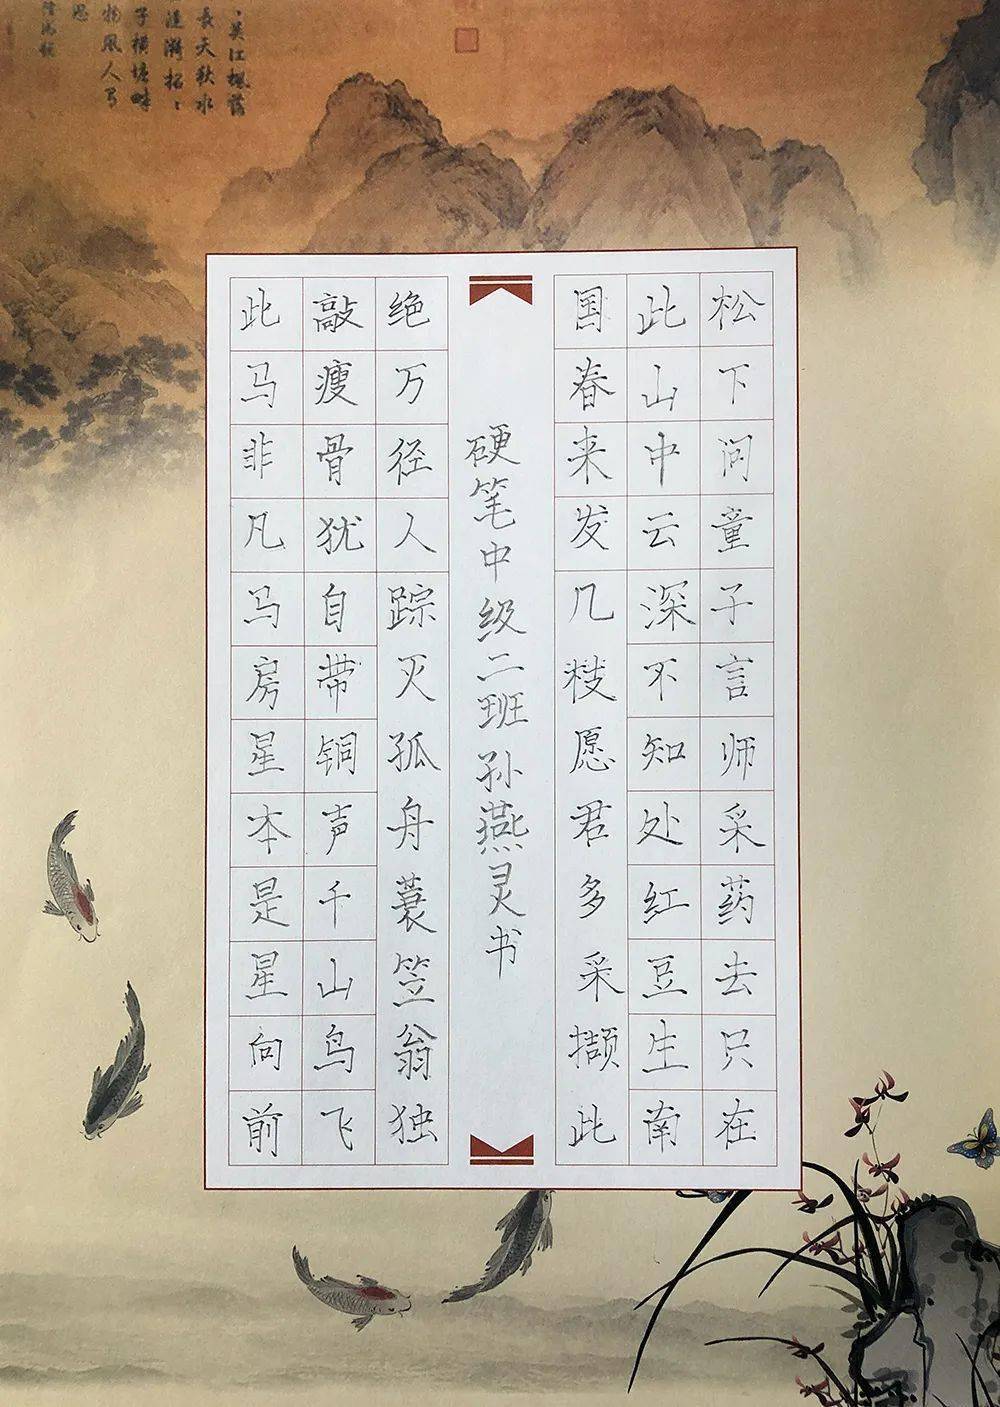 松下问童子言师采药去只在
此山中云深不知处红豆生南
国春来发几枝愿君多采撷此
硬笔中级二班孙燕灵书
绝万径人踪灭孤舟蓑笠翁独
敲瘦骨犹自带铜声千山鸟飞
此马非凡马房星本是星向前
吴江枫落
长天秋水